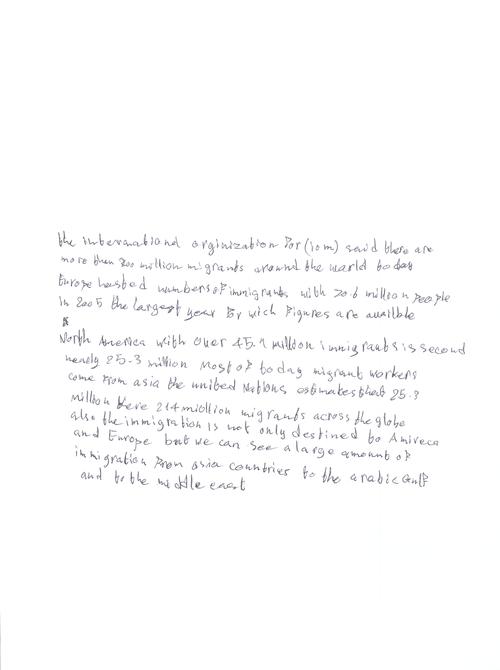 the internationd orginization For (iom) said there are
more then 200 million migrants around the world today
Europe hasted numbers of immigrants with 70.6 million people
in 2005 the largest year For wich Figures are availble
North America with over 45.1 million immigrants is second
nearly 25.3 million Most of today migrant workers
come From asia the united Nations estimates that 25.3
million there 214 midllion migrants across the globe
also the immigration is not only destined to Amireca
and Europe but we can see a large amount of
immigration From asia countries to the arabic Gulf
and to the middle east